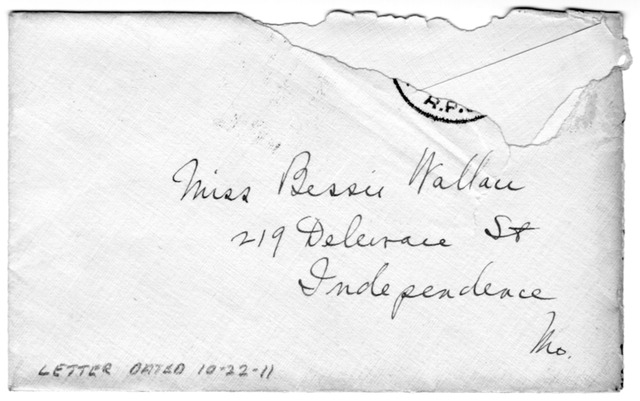 R.P.
Miss Bessie Wallace
219 Deleware St
Independence
Mo.
LETTER DATED 10-22-11